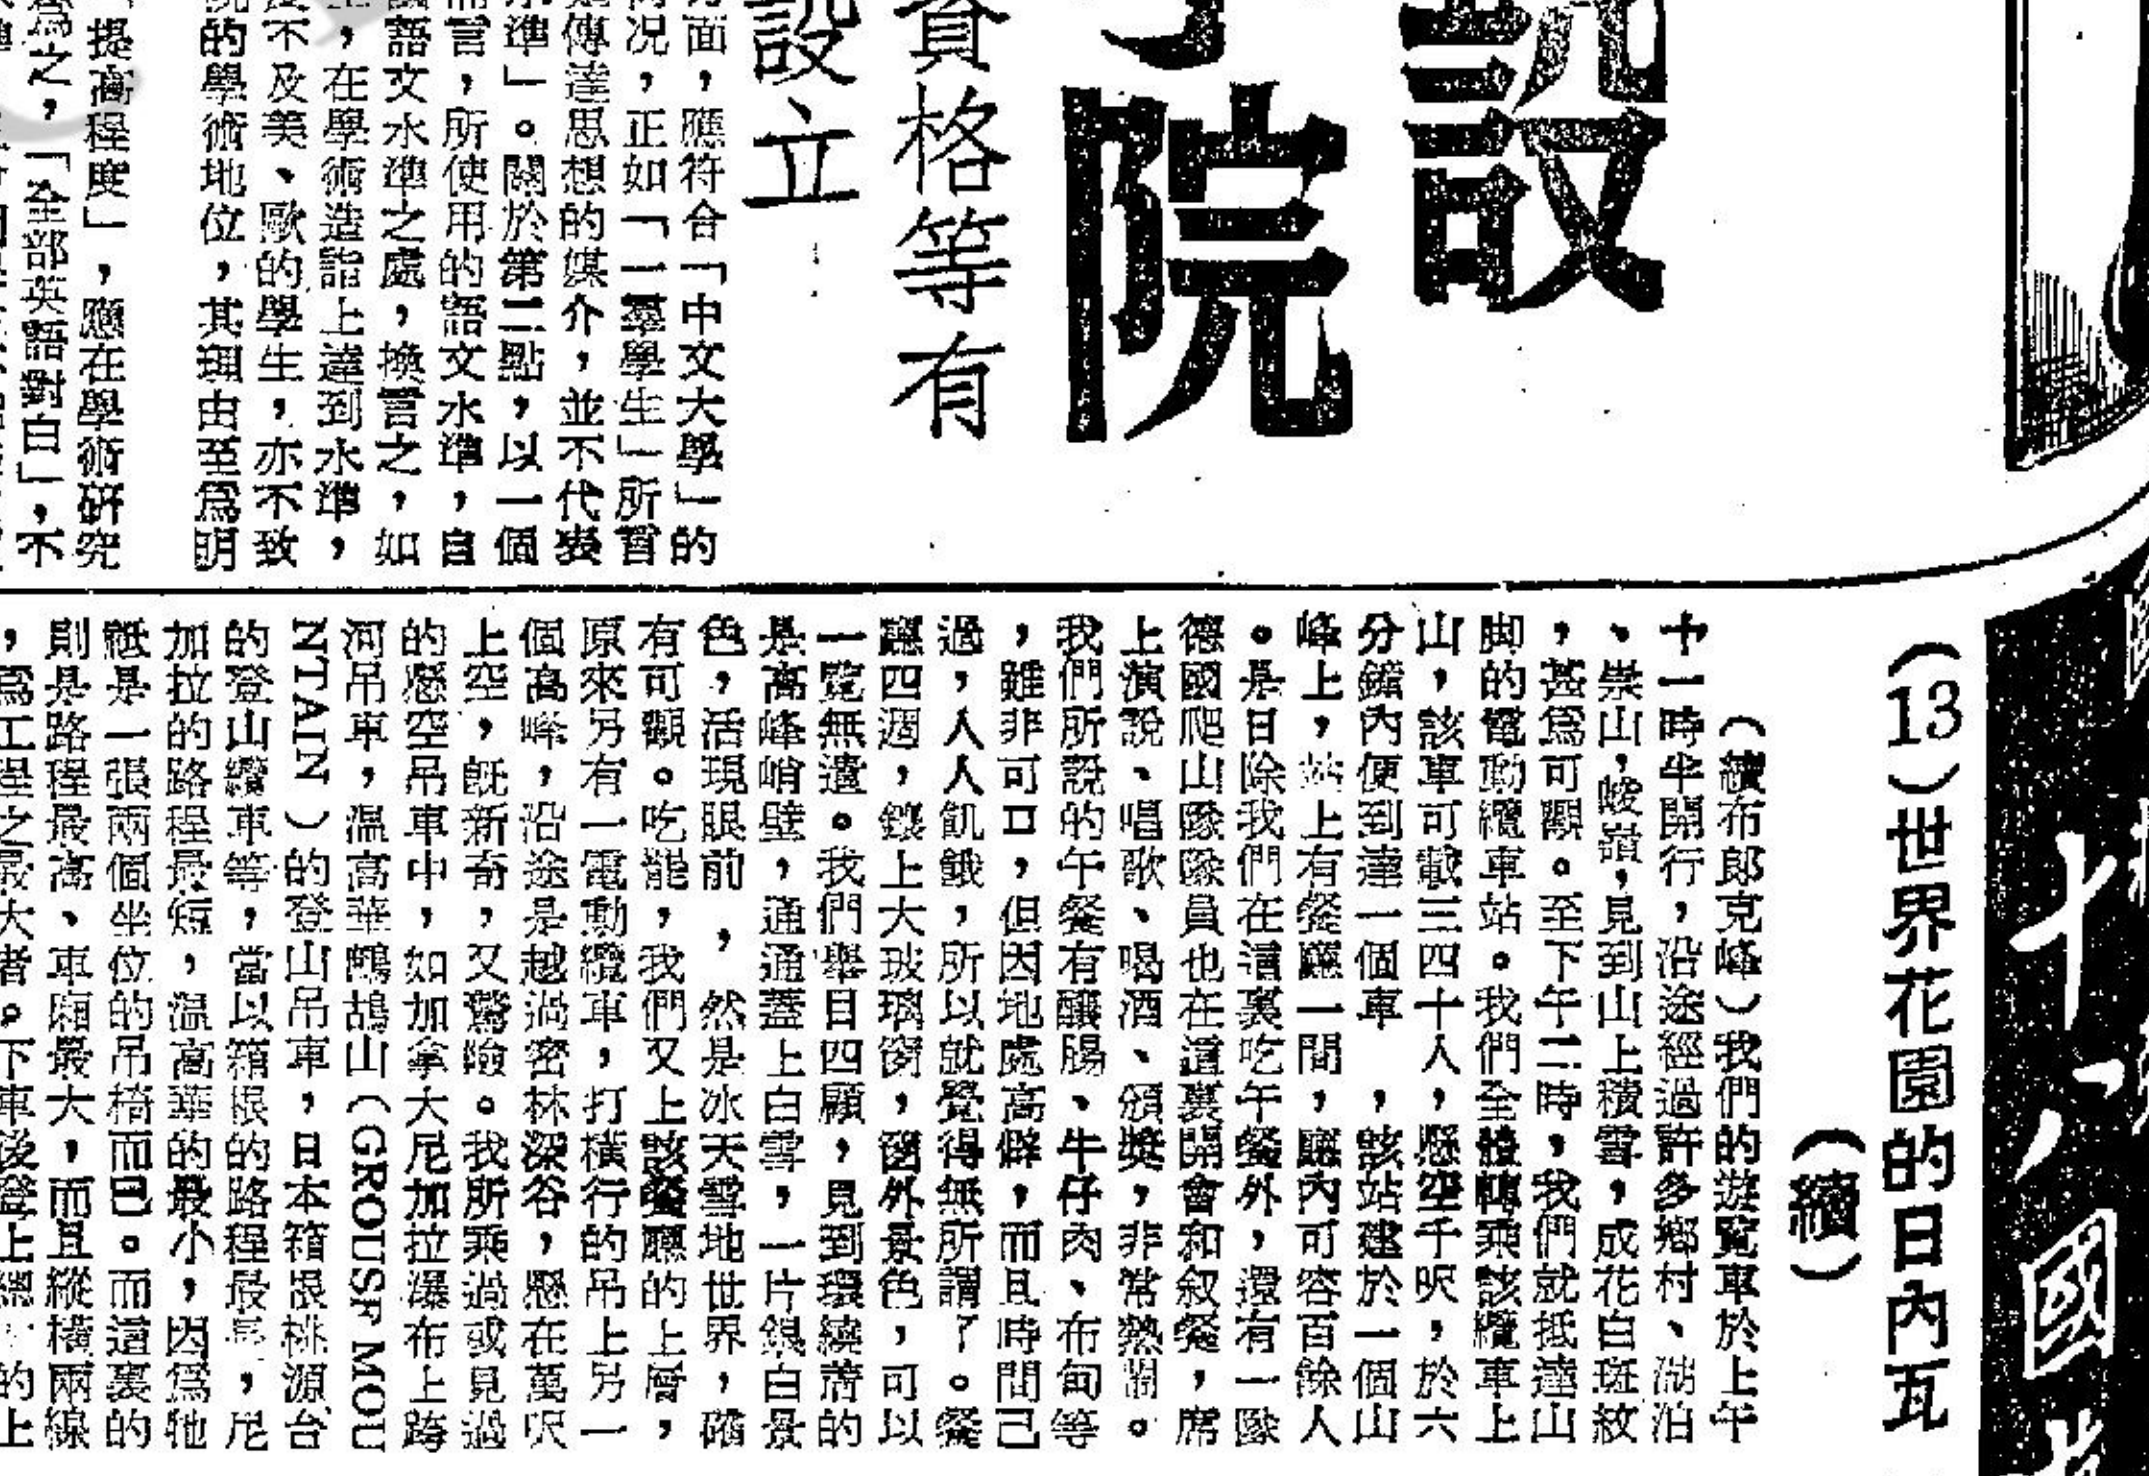 設
院
資格等有
設立
面，應符合「中文大學」的
况，正如「一羣學生」所
傳達思想的媒介，並不代表
準」。關於第二點，以一個
言，所使用的語文水準，自
語文水準之處，換言之，如
，在學術造詣上達到水準，
不及美、歐的學生，亦不致
的學術地位，其理由至爲明
提高程度」，應在學術研究
爲之，「全部英語對白」，不
十八國
（13）世界花園的日內瓦
（續）
（續布郎克峰）我們的遊覽車於上午
十一時半開行，沿途經過許多鄉村、湖泊
、崇山，峻嶺，見到山上積雪，成花白斑紋
，甚爲可觀。至下午二時，我們就抵達山
脚的電動纜車站。我們全體轉乘該纜車上
山，該車可載三四十人，懸空千呎，於六
分鐘內便到達一個車，該站建於一個山
峰上，站上有餐廳一間，廳內可容百餘人
。是日除我們在這裏吃午餐外，還有一隊
德國爬山隊隊員也在這裏開會和叙餐，席
上演說、唱歌、喝酒、頒獎，非常熱鬧。
我們所說的午餐有釀腸、牛仔肉、布甸等
，雖非可口，但因地處高僻，而且時間已
過，人人飢餓，所以就覺得無所謂了。餐
廳四週，鑲上大玻璃窗，窗外景色，可以
一覽無遺。我們舉目四顧，見到環繞着的
是高峰峭壁，通通蓋上白雪，一片銀白景
色，活現眼前，然是冰天雪地世界，確
有可觀。吃罷，我們又上該餐廳的上層，
原來另有一電動纜車，打橫行的吊上另一
個高峰，沿途是越過密林深谷，懸在萬呎
上空，既新奇，又驚險。我所乘過或見過
的懸空吊車中，如加拿大尼加拉瀑布上跨
河吊車，溫高華鷓鴣山（GROUSF MOU
NTAIN）的登山吊車，日本箱根桃源台
的登山纜車等，當以箱根的路程最長，尼
加拉的路程最短，溫高華的最小，因爲牠
祗是一張兩個坐位的吊椅而已。而這裏的
則是路程最高、車廂最大，而且縱橫兩線
，爲工程之最大者。下車後登上 的上